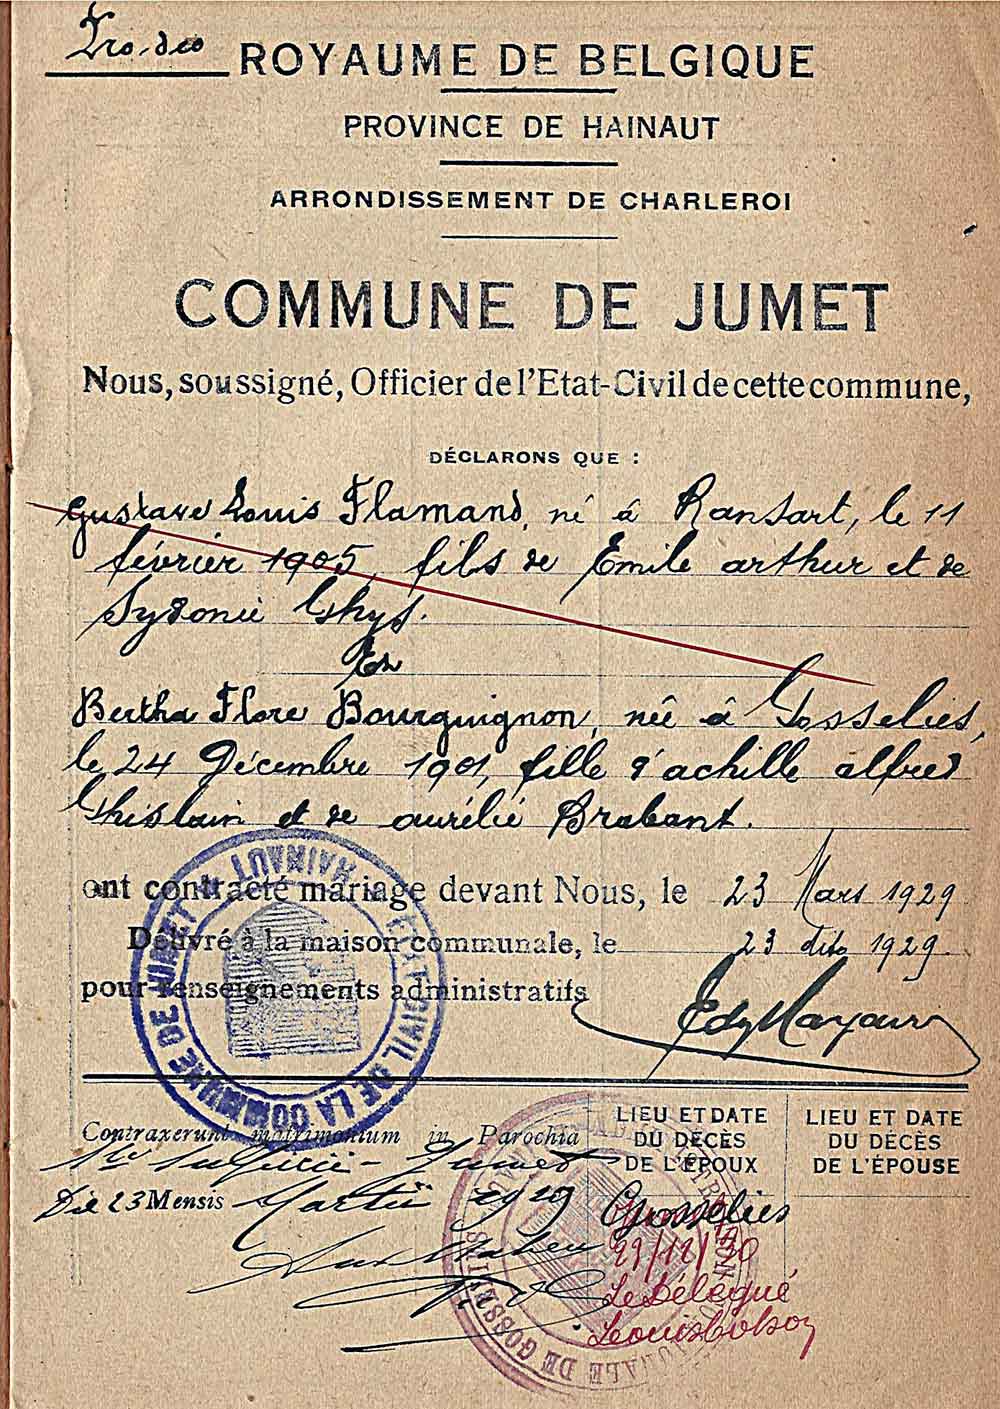 Pro-deo
ROYAUME DE BELGIQUE
PROVINCE DE HAINAUT
ARRONDISSEMENT DE CHARLEROI
COMMUNE DE JUMET
Nous, soussigné, Officier de l'Etat-Civil de cette commune,
DÉCLARONS QUE :
Gustave Louis Flamand, né à Ransart, le 11
février 1905, fils de Emile arthur et de
Sydonie Ghys.
Et
Bertha Flore Bourguignon, née à Gosselies,
le 24 Décembre 1901, fille d'achille alfred
Ghislain et de aurélie Brabant.
ont contracté mariage devant Nous, le 23 Mars 1929
Délivré à la maison communale, le 23 dito 1929.
pour renseignements administratifs
ETAT CIVIL DE LA COMMUNE DE JUMET HAINAUT
Contraxerunt matrimonium in Parochia
Jumet
Die 23 Mensis Martii 1929
LIEU ET DATE
DU DÉCÈS
DE L'ÉPOUX
Gosselies
29/12/30
Le Délégué
LIEU ET DATE
DU DÉCÈS
DE L'ÉPOUSE